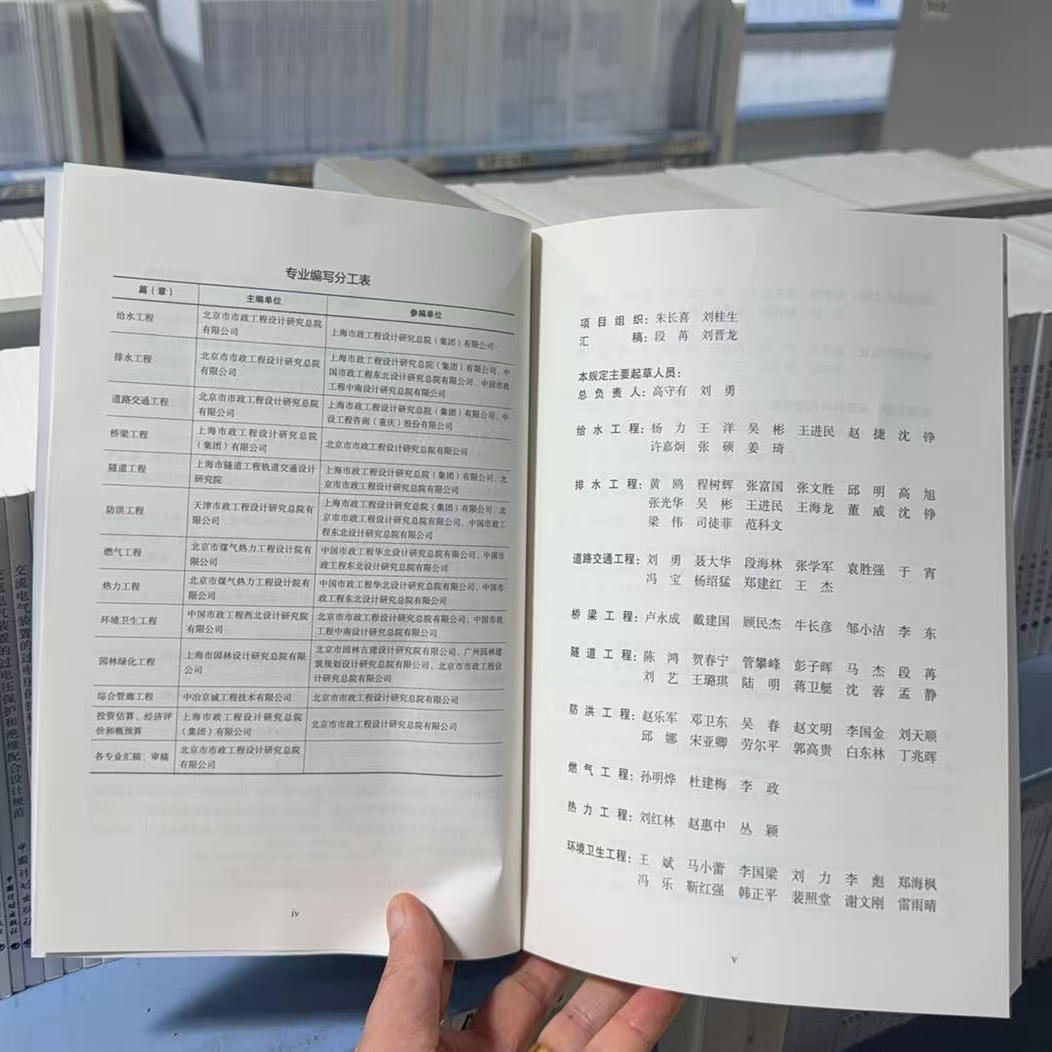 专业编写分工表
篇（章） 主编单位 参编单位
给水工程 北京市市政工程设计研究总院有限公司 上海市政工程设计研究总院（集团）有限公司
排水工程 北京市市政工程设计研究总院有限公司 上海市政工程设计研究总院（集团）有限公司、中国市政工程东北设计研究总院有限公司、中国市政工程中南设计研究总院有限公司
道路交通工程 北京市市政工程设计研究总院有限公司 上海市政工程设计研究总院（集团）有限公司、中设工程咨询（重庆）股份有限公司
桥梁工程 上海市政工程设计研究总院（集团）有限公司 北京市市政工程设计研究总院有限公司
隧道工程 上海市隧道工程轨道交通设计研究院 上海市政工程设计研究总院（集团）有限公司、北京市市政工程设计研究总院有限公司
防洪工程 天津市政工程设计研究总院有限公司 上海市政工程设计研究总院（集团）有限公司、北京市市政工程设计研究总院有限公司、中国市政工程东北设计研究总院有限公司
燃气工程 北京市煤气热力工程设计院有限公司 中国市政工程华北设计研究总院有限公司、中国市政工程东北设计研究总院有限公司
热力工程 北京市煤气热力工程设计院有限公司 中国市政工程华北设计研究总院有限公司、中国市政工程东北设计研究总院有限公司
环境卫生工程 中国市政工程西北设计研究院有限公司 北京市市政工程设计研究总院有限公司、中国市政工程中南设计研究总院有限公司
园林绿化工程 上海市园林设计研究总院有限公司 北京市园林古建设计研究院有限公司、广州园林建筑规划设计研究总院有限公司、北京市市政工程设计研究总院有限公司
综合管廊工程 中冶京诚工程技术有限公司 北京市市政工程设计研究总院有限公司
投资估算、经济评价和概预算 上海市政工程设计研究总院（集团）有限公司 北京市市政工程设计研究总院有限公司
各专业汇稿、审稿 北京市市政工程设计研究总院有限公司
iv
项目组织：朱长喜 刘桂生
汇稿：段苒 刘晋龙
本规定主要起草人员：
总负责人：高守有 刘勇
给水工程：杨力 王洋 吴彬 王进民 赵捷 沈铮
许嘉炯 张硕 姜琦
排水工程：黄鸥 程树辉 张富国 张文胜 邱明 高旭
张光华 吴彬 王进民 王海龙 董威 沈铮
梁伟 司徒菲 范科文
道路交通工程：刘勇 聂大华 段海林 张学军 袁胜强 于宵
冯宝 杨绍猛 郑建红 王杰
桥梁工程：卢永成 戴建国 顾民杰 牛长彦 邹小洁 李东
隧道工程：陈鸿 贺春宁 管攀峰 彭子晖 马杰 段苒
刘艺 王璐琪 陆明 蒋卫艇 沈蓉 孟静
防洪工程：赵乐军 邓卫东 吴春 赵文明 李国金 刘天顺
邱娜 宋亚卿 劳尔平 郭高贵 白东林 丁兆晖
燃气工程：孙明烨 杜建梅 李政
热力工程：刘红林 赵惠中 丛颖
环境卫生工程：王斌 马小蕾 李国梁 刘力 李彪 郑海枫
冯乐 靳红强 韩正平 裴照堂 谢文刚 雷雨晴
v
交流电气装置的过电压保护和绝缘配合设计规范
中国计划出版社